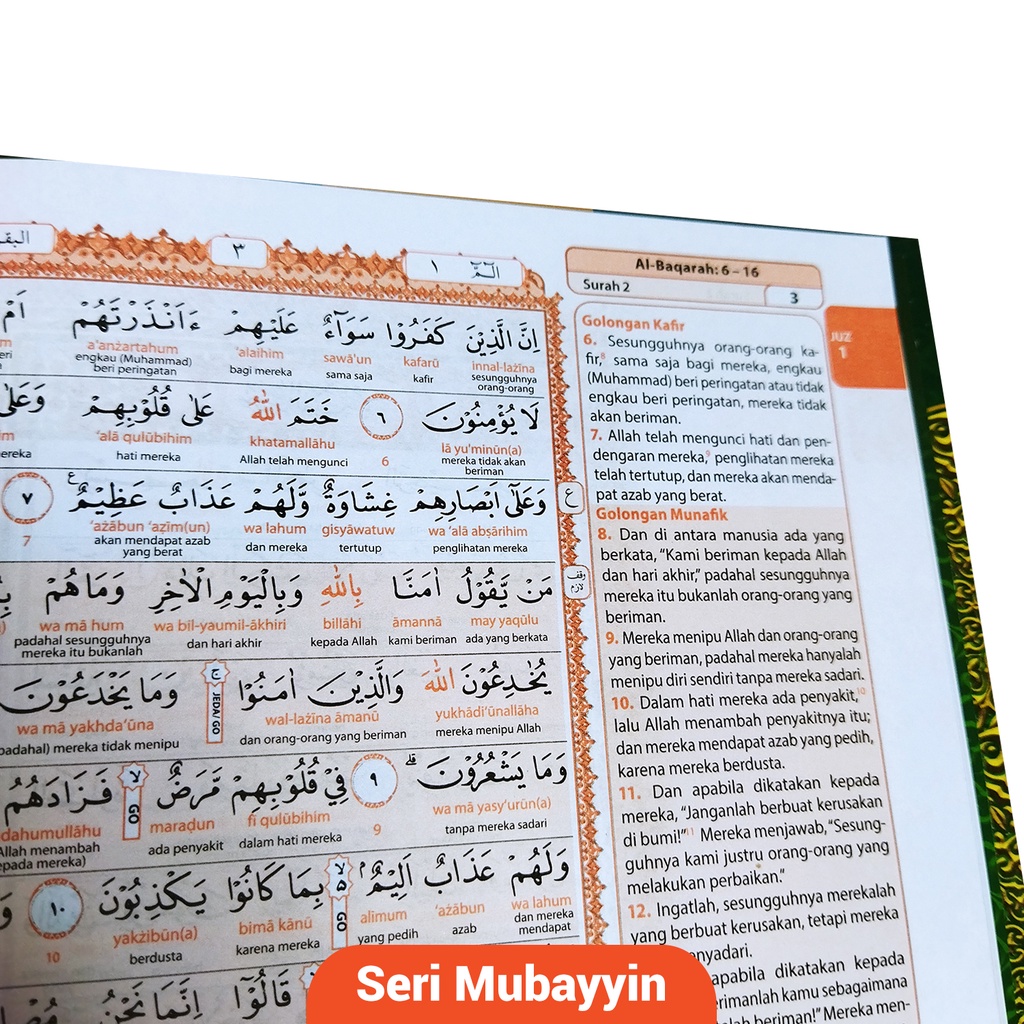 الٓمّٓ ١
٣
البق
اِنَّ الَّذِيْنَ كَفَرُوْا سَوَاۤءٌ عَلَيْهِمْ ءَاَنْذَرْتَهُمْ اَمْ
innal-lażīna kafarū sawā'un 'alaihim a'anżartahum
sesungguhnya orang-orang kafir sama saja bagi mereka engkau (Muhammad) beri peringatan
لَا يُؤْمِنُوْنَ ٦ خَتَمَ اللّٰهُ عَلٰى قُلُوْبِهِمْ وَعَلٰى
lā yu'minūn(a) 6 khatamallāhu 'alā qulūbihim
mereka tidak akan beriman Allah telah mengunci hati mereka
وَعَلٰٓى اَبْصَارِهِمْ غِشَاوَةٌ وَّلَهُمْ عَذَابٌ عَظِيْمٌ ࣖ ٧
wa 'alā abṣārihim gisyāwatuw wa lahum 'ażābun 'aẓīm(un) 7
penglihatan mereka tertutup dan mereka akan mendapat azab yang berat
مَنْ يَّقُوْلُ اٰمَنَّا بِاللّٰهِ وَبِالْيَوْمِ الْاٰخِرِ وَمَا هُمْ
may yaqūlu āmannā billāhi wa bil-yaumil-ākhiri wa mā hum
ada yang berkata kami beriman kepada Allah dan hari akhir padahal sesungguhnya mereka itu bukanlah
يُخٰدِعُوْنَ اللّٰهَ وَالَّذِيْنَ اٰمَنُوْا ۚ JEDA/ GO وَمَا يَخْدَعُوْنَ
yukhādi'ūnallāha wal-lażīna āmanū wa mā yakhda'ūna
mereka menipu Allah dan orang-orang yang beriman padahal) mereka tidak menipu
وَمَا يَشْعُرُوْنَ ۗ ٩ فِيْ قُلُوْبِهِمْ مَّرَضٌ ۙ GO فَزَادَهُمُ
wa mā yasy'urūn(a) 9 fī qulūbihim maraḍun dahumullāhu
tanpa mereka sadari dalam hati mereka ada penyakit Allah menambah epada mereka)
وَلَهُمْ عَذَابٌ اَلِيْمٌ ۢ ۙ GO بِمَا كَانُوْا يَكْذِبُوْنَ ١٠
wa lahum 'ażābun alīmum bimā kānū yakżibūn(a) 10
dan mereka mendapat azab yang pedih karena mereka berdusta
قَالُوْٓا اِنَّمَا نَحْنُ
ع
وقف لازم
Al-Baqarah: 6 – 16
Surah 2
3
JUZ
1
Golongan Kafir
6. Sesungguhnya orang-orang ka-
fir,⁸ sama saja bagi mereka, engkau
(Muhammad) beri peringatan atau tidak
engkau beri peringatan, mereka tidak
akan beriman.
7. Allah telah mengunci hati dan pen-
dengaran mereka,⁹ penglihatan mereka
telah tertutup, dan mereka akan menda-
pat azab yang berat.
Golongan Munafik
8. Dan di antara manusia ada yang
berkata, "Kami beriman kepada Allah
dan hari akhir," padahal sesungguhnya
mereka itu bukanlah orang-orang yang
beriman.
9. Mereka menipu Allah dan orang-orang
yang beriman, padahal mereka hanyalah
menipu diri sendiri tanpa mereka sadari.
10. Dalam hati mereka ada penyakit,¹⁰
lalu Allah menambah penyakitnya itu;
dan mereka mendapat azab yang pedih,
karena mereka berdusta.
11. Dan apabila dikatakan kepada
mereka, "Janganlah berbuat kerusakan
di bumi!"¹¹ Mereka menjawab, "Sesung-
guhnya kami justru orang-orang yang
melakukan perbaikan."
12. Ingatlah, sesungguhnya merekalah
yang berbuat kerusakan, tetapi mereka
nyadari.
apabila dikatakan kepada
rimanlah kamu sebagaimana
beriman!" Mereka men-
Seri Mubayyin